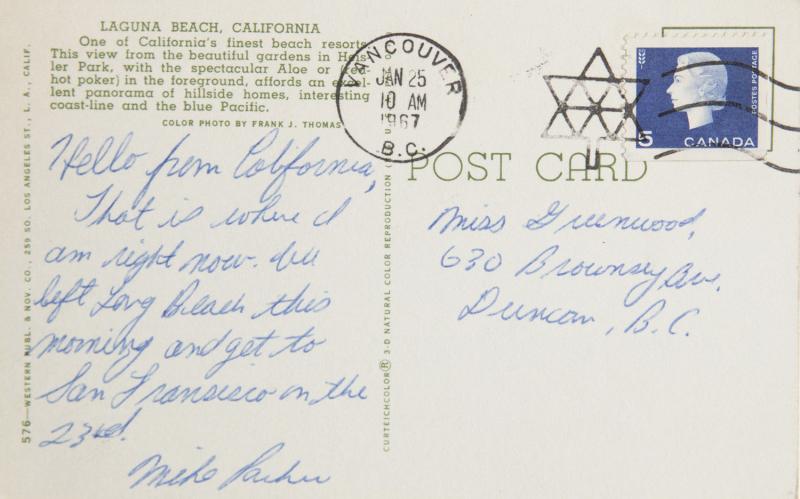 LAGUNA BEACH, CALIFORNIA
One of California's finest beach resorts.
This view from the beautiful gardens in Heis-
ler Park, with the spectacular Aloe or
hot poker) in the foreground, affords an excel-
lent panorama of hillside homes, interesting
coast-line and the blue Pacific.
COLOR PHOTO BY FRANK J. THOMAS
576—WESTERN PUBL. & NOV. CO., 259 SO. LOS ANGELES ST., L. A., CALIF.
Hello from California,
That is where I
am right now. We
left Long Beach this
morning and get to
San Fransisco on the
23rd.
Mike Parker
CURTEICHCOLOR® 3-D NATURAL COLOR REPRODUCTION
VANCOUVER
JAN 25
10 AM
1967
B.C.
POST CARD
5
CANADA
POSTES POSTAGE
Miss Greenwood,
630 Brownsey Ave,
Duncan, B.C.